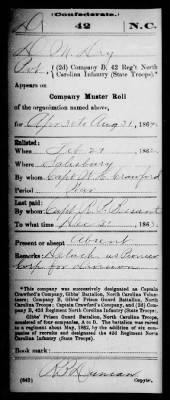 (Confederate.)
D 42 N.C.
D. M. Dry
Pvt., (2d) Company D, 42 Reg't North
Carolina Infantry (State Troops).*
Appears on
Company Muster Roll
of the organization named above,
for Apr 30 to Aug 31, 1864
Enlisted:
When Feb 27, 1862
Where Salisbury
By whom Capt W. H. Crawford
Period War
Last paid:
By whom Capt R. L.
To what time Dec 31, 1863
Present or absent Absent
Remarks: Detach as Pioneer
Corp for Division
*This company was successively designated as Captain
Crawford's Company, Gibbs' Battalion, North Carolina Volun-
teers; Company B, Gibbs' Prison Guard Battalion,
North Carolina Troops; Captain Crawford's Company, and (2d) Com-
pany D, 42d Regiment North Carolina Infantry (State Troops).
Gibbs' Prison Guard Battalion, North Carolina Troops,
consisted of four companies, A to D. The battalion was in-
creased to a regiment about May, 1862, by the addition of six com-
panies of recruits and designated the 42d Regiment
North Carolina Infantry (State Troops).
Book mark:
R B Duncan
(642) Copyist.